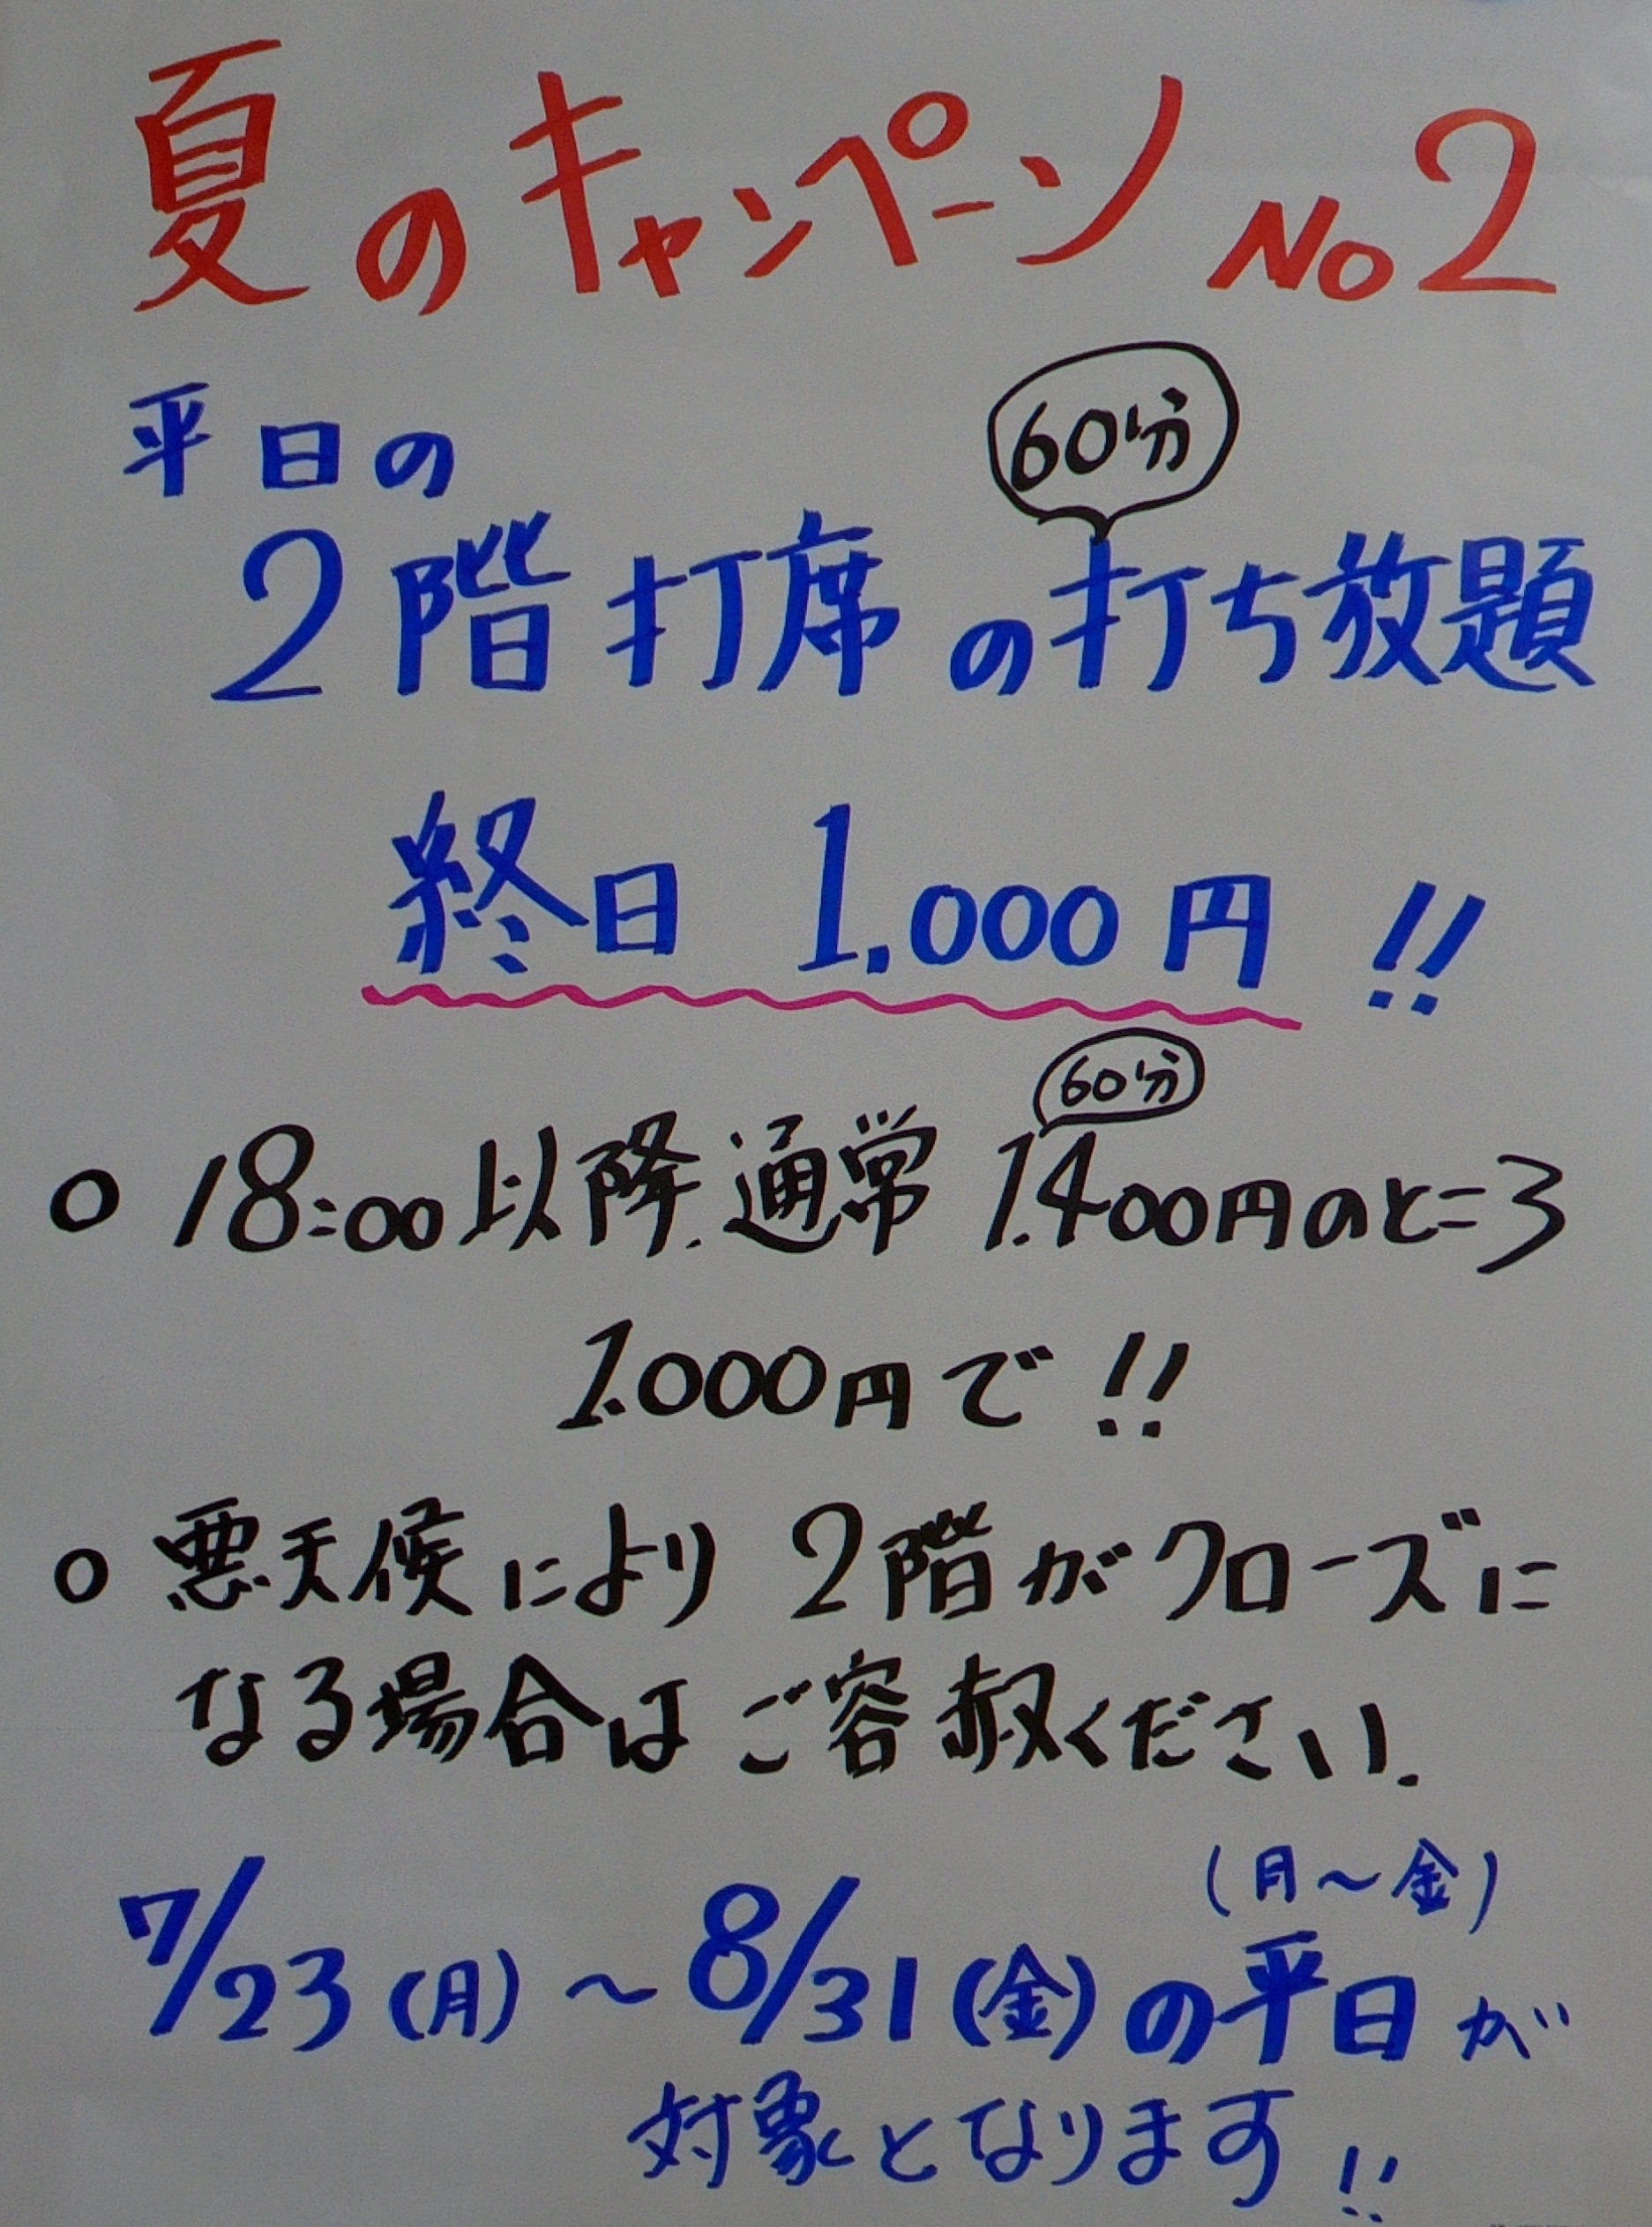 夏のキャンペーン No2
平日の
60分
2階打席の打ち放題
終日 1,000円!!
60分
○ 18:00以降、通常 1,400円のところ
1,000円で!!
○ 悪天候により 2階がクローズに
なる場合はご容赦ください.
(月〜金)
7/23(月)〜8/31(金)の平日が
対象となります!!